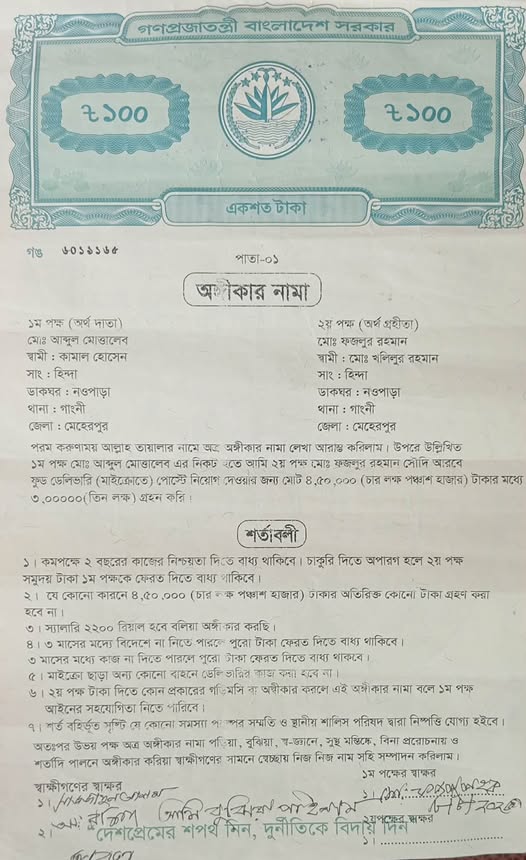 গণপ্রজাতন্ত্রী বাংলাদেশ সরকার
৳১০০
৳১০০
একশত টাকা
গঙ ৬০১১১৬৫
পাতা-০১
অঙ্গীকার নামা
১ম পক্ষ (অর্থ দাতা)
মোঃ আব্দুল মোত্তালেব
স্বামী : কামাল হোসেন
সাং : হিন্দা
ডাকঘর : নওপাড়া
থানা : গাংনী
জেলা : মেহেরপুর
২য় পক্ষ (অর্থ গ্রহীতা)
মোঃ ফজলুর রহমান
স্বামী : মোঃ খলিলুর রহমান
সাং : হিন্দা
ডাকঘর : নওপাড়া
থানা : গাংনী
জেলা : মেহেরপুর
পরম করুণাময় আল্লাহ তায়ালার নামে অত্র অঙ্গীকার নামা লেখা আরাম্ভ করিলাম। উপরে উল্লিখিত
১ম পক্ষ মোঃ আব্দুল মোত্তালেব এর নিকট হতে আমি ২য় পক্ষ মোঃ ফজলুর রহমান সৌদি আরবে
ফুড ডেলিভারি (মাইক্রোতে) পোস্টে নিয়োগ দেওয়ার জন্য মোট ৪,৫০,০০০ (চার লক্ষ পঞ্চাশ হাজার) টাকার মধ্যে
৩,০০০০০(তিন লক্ষ) গ্রহন করি।
শর্তাবলী
১। কমপক্ষে ২ বছরের কাজের নিশ্চয়তা দিতে বাধ্য থাকিবে। চাকুরি দিতে অপারগ হলে ২য় পক্ষ
সমুদয় টাকা ১ম পক্ষকে ফেরত দিতে বাধ্য থাকিবে।
২। যে কোনো কারনে ৪,৫০,০০০ (চার লক্ষ পঞ্চাশ হাজার) টাকার অতিরিক্ত কোনো টাকা গ্রহণ করা
হবে না।
৩। স্যালারি ২২০০ রিয়াল হবে বলিয়া অঙ্গীকার করছি।
৪। ৩ মাসের মদ্যে বিদেশে না নিতে পারলে পুরো টাকা ফেরত দিতে বাধ্য থাকিবে।
৩ মাসের মধ্যে কাজ না দিতে পারলে পুরো টাকা ফেরত দিতে বাধ্য থাকবে।
৫। মাইক্রো ছাড়া অন্য কোনো বাহনে ডেলিভারির কাজ করা হবে না।
৬। ২য় পক্ষ টাকা দিতে কোন প্রকারের গড়িমসি বা অস্বীকার করলে এই অঙ্গীকার নামা বলে ১ম পক্ষ
আইনের সহযোগিতা নিতে পারিবে।
৭। শর্ত বহির্ভূত সৃষ্টি যে কোনো সমস্যা পরস্পর সম্মতি ও স্থানীয় শালিস পরিষদ দ্বারা নিষ্পত্তি যোগ্য হইবে।
অতঃপর উভয় পক্ষ অত্র অঙ্গীকার নামা পড়িয়া, বুঝিয়া, স্ব-জ্ঞানে, সুস্থ মস্তিষ্কে, বিনা প্ররোচনায় ও
শর্তাদি পালনে অঙ্গীকার করিয়া স্বাক্ষীগণের সামনে স্বেচ্ছায় নিজ নিজ নাম সহি সম্পাদন করিলাম।
স্বাক্ষীগণের স্বাক্ষর
১ম পক্ষের স্বাক্ষর
১।
১।
আমি বুঝিয়া পাইলাম
২য় পক্ষের স্বাক্ষর
২।
দেশপ্রেমের শপথ নিন, দুর্নীতিকে বিদায় দিন
১।